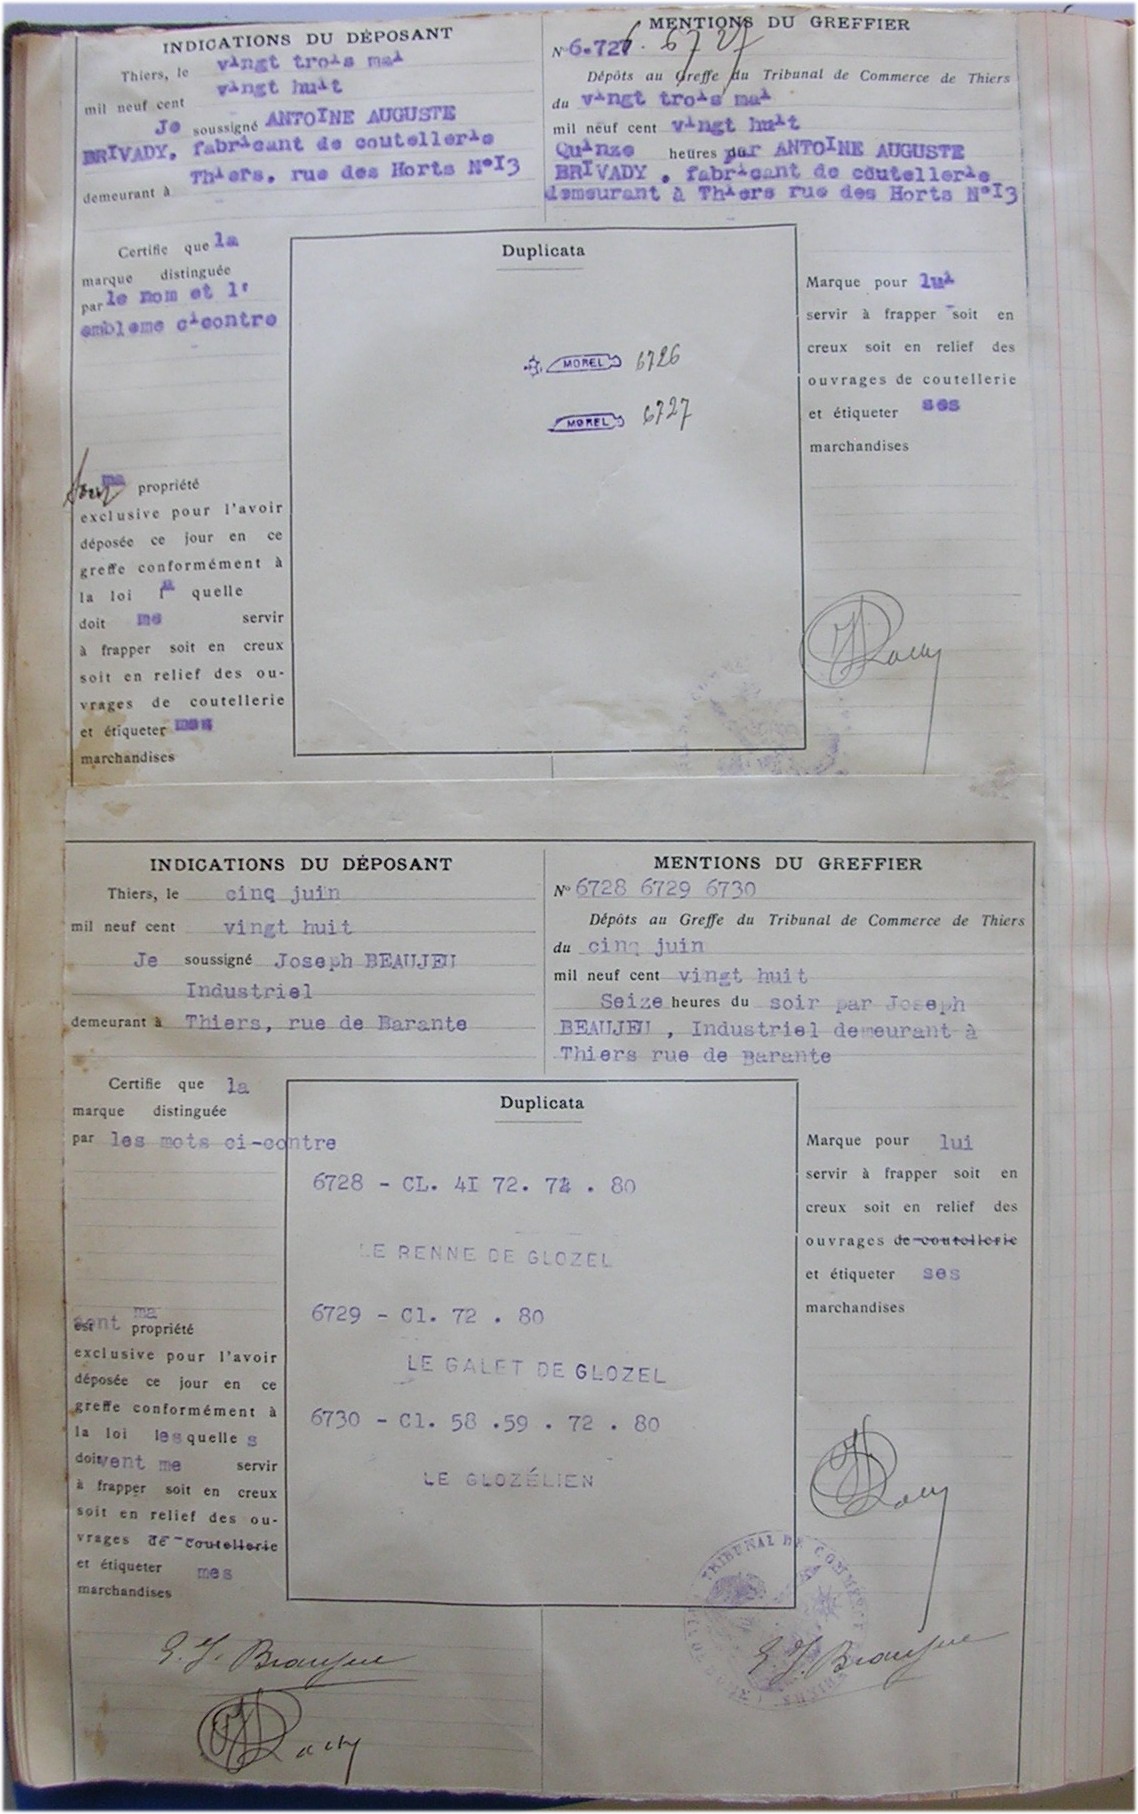 INDICATIONS DU DÉPOSANT
Thiers, le vingt trois mai
mil neuf cent vingt huit
Je soussigné ANTOINE AUGUSTE
BRIVADY, fabricant de coutellerie
demeurant à Thiers, rue des Horts N°I3
MENTIONS DU GREFFIER
N° 6.727 6727
Dépôts au Greffe du Tribunal de Commerce de Thiers
du vingt trois mai
mil neuf cent vingt huit
Quinze heures par ANTOINE AUGUSTE
BRIVADY , fabricant de coutellerie
demeurant à Thiers rue des Horts N°I3
Certifie que la
marque distinguée
par le nom et l'
embleme cicontre
ma propriété
exclusive pour l'avoir
déposée ce jour en ce
greffe conformément à
la loi la quelle
doit me servir
à frapper soit en creux
soit en relief des ou-
vrages de coutellerie
et étiqueter mes
marchandises
Duplicata
MOREL 6726
MOREL 6727
Marque pour lui
servir à frapper soit en
creux soit en relief des
ouvrages de coutellerie
et étiqueter ses
marchandises
INDICATIONS DU DÉPOSANT
Thiers, le cinq juin
mil neuf cent vingt huit
Je soussigné Joseph BEAUJEU
Industriel
demeurant à Thiers, rue de Barante
MENTIONS DU GREFFIER
N° 6728 6729 6730
Dépôts au Greffe du Tribunal de Commerce de Thiers
du cinq juin
mil neuf cent vingt huit
Seize heures du soir par Joseph
BEAUJEU , Industriel demeurant à
Thiers rue de Barante
Certifie que la
marque distinguée
par les mots ci-contre
sont ma
est propriété
exclusive pour l'avoir
déposée ce jour en ce
greffe conformément à
la loi lesquelles
doivent me servir
à frapper soit en creux
soit en relief des ou-
vrages de coutellerie
et étiqueter mes
marchandises
Duplicata
6728 - CL. 4I 72. 74 . 80
LE RENNE DE GLOZEL
6729 - Cl. 72 . 80
LE GALET DE GLOZEL
6730 - Cl. 58 .59 . 72 . 80
LE GLOZÉLIEN
Marque pour lui
servir à frapper soit en
creux soit en relief des
ouvrages de coutellerie
et étiqueter ses
marchandises
TRIBUNAL DE COMMERCE
THIERS
E. J. Beaujeu
E. J. Beaujeu